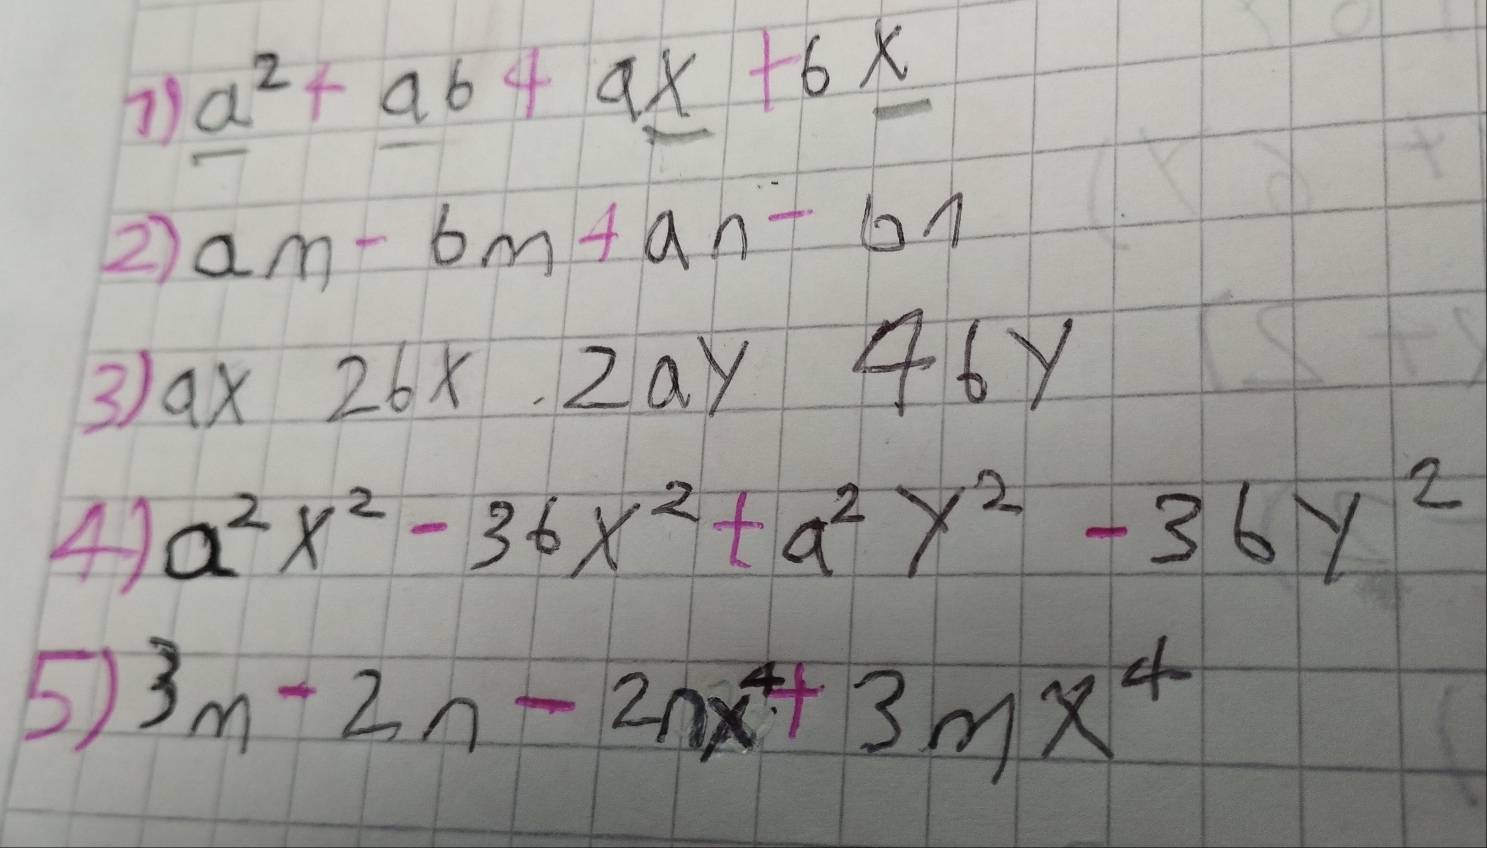 1) a² + ab + ax + bx
2) am - bm + an - bn
3) ax 2bx . 2ay 4by
4) a²x² - 3bx² + a²y² - 3by²
5) 3m - 2n - 2nx⁴ + 3mx⁴